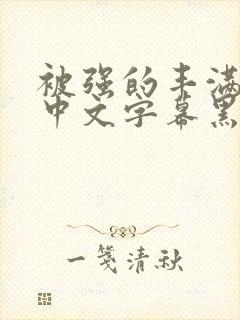 被强的丰满
中文字幕黑
一笺清秋